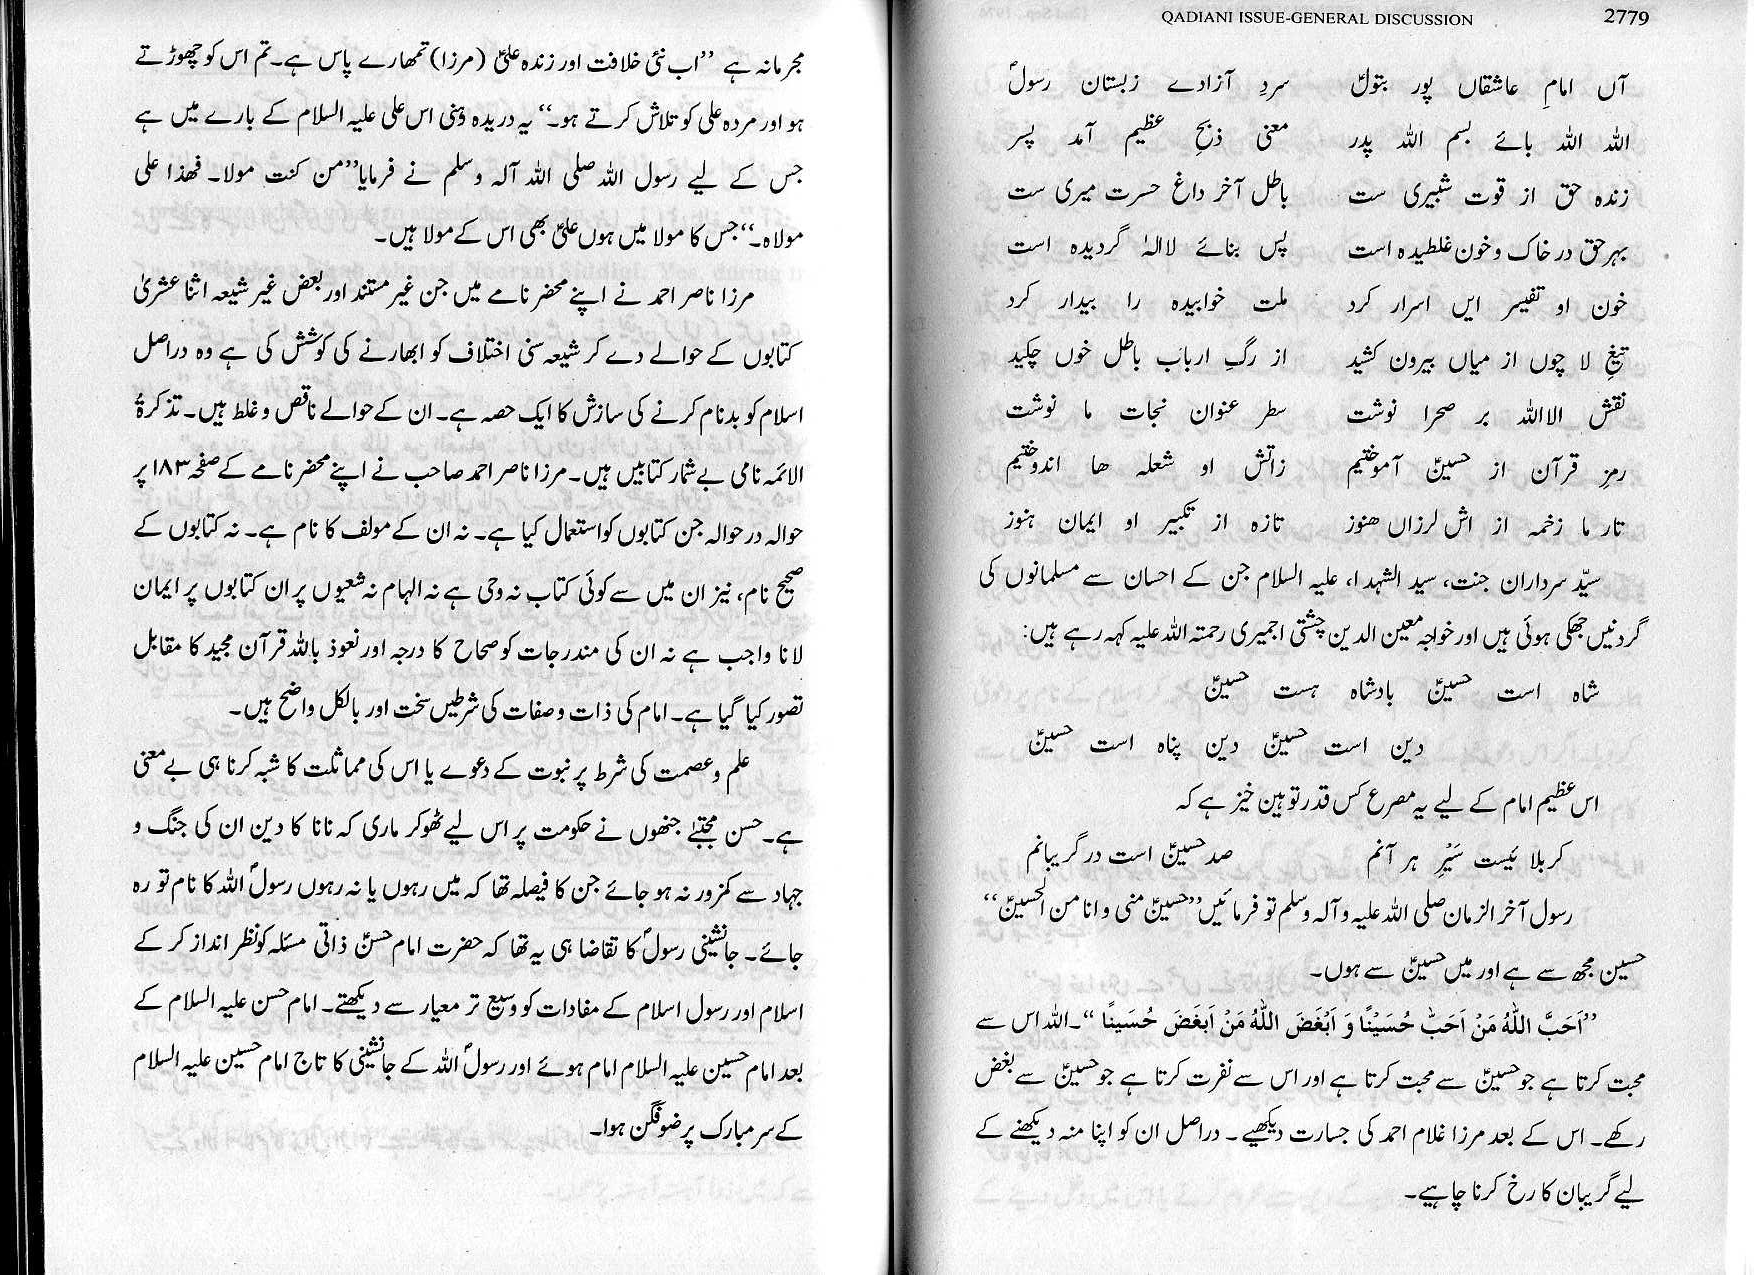 QADIANI ISSUE-GENERAL DISCUSSION 2779
آں امامِ عاشقاں پور بتولؑ سردِ آزادے زبستان رسولؐ
اللہ اللہ بائے بسم اللہ پدر معنی ذبحِ عظیم آمد پسر
زندہ حق از قوت شبیری ست باطل آخر داغ حسرت میری ست
بہر حق در خاک و خون غلطیدہ است پس بنائے لاالہٰ گردیدہ است
خون او تفیسر ایں اسرار کرد ملت خوابیدہ را بیدار کرد
تیغِ لا چوں از میاں بیرون کشید از رگِ ارباب باطل خوں چکید
نقش الااللہ بر صحرا نوشت سطر عنوان نجات ما نوشت
رمزِ قرآن از حسینؑ آموختیم زاتش او شعلہ ھا اندوختیم
تار ما زخمہ از اش لرزاں ھنوز تازہ از تکبیر او ایمان ہنوز
سیّد سرداران جنت، سید الشہدا، علیہ السلام جن کے احسان سے مسلمانوں کی
گردنیں جھکی ہوئی ہیں اور خواجہ معین الدین چشتی اجمیری رحمتہ اللہ علیہ کہہ رہے ہیں:
شاہ است حسینؑ بادشاہ ہست حسینؑ
دین است حسینؑ دین پناہ است حسینؑ
اس عظیم امام کے لیے یہ مصرع کس قدر توہین خیز ہے کہ
کربلا ئیست سَیرِ ہر آنم صد حسینؑ است در گریبانم
رسول آخر الزمان صلی اللہ علیہ و آلہ وسلم تو فرمائیں ”حسینؑ منی و انا من الحسینؑ“
حسین مجھ سے ہے اور میں حسینؑ سے ہوں۔
”اَحَبَّ اللّٰهُ مَنْ اَحَبَّ حُسَیْنًا وَ اَبْغَضَ اللّٰهُ مَنْ اَبغَضَ حُسَینًا“۔ اللہ اس سے
محبت کرتا ہے جو حسینؑ سے محبت کرتا ہے اور اس سے نفرت کرتا ہے جو حسینؑ سے بغض
رکھے۔ اس کے بعد مرزا غلام احمد کی جسارت دیکھیے۔ دراصل ان کو اپنا منہ دیکھنے کے
لیے گریبان کا رخ کرنا چاہیے۔
مجرمانہ ہے ”اب نئی خلافت اور زندہ علیؑ (مرزا) تمھارے پاس ہے۔ تم اس کو چھوڑتے
ہو اور مردہ علی کو تلاش کرتے ہو۔“ یہ دریدہ ذہنی اس علی علیہ السلام کے بارے میں ہے
جس کے لیے رسول اللہ صلی اللہ آلہ وسلم نے فرمایا ”من کنت مولا۔ فھذا علی
مولاہ۔“ جس کا مولا میں ہوں علیؑ بھی اس کے مولا ہیں۔
مرزا ناصر احمد نے اپنے محضر نامے میں جن غیر مستند اور بعض غیر شیعہ اثنا عشریٰ
کتابوں کے حوالے دے کر شیعہ سنی اختلاف کو ابھارنے کی کوشش کی ہے وہ دراصل
اسلام کو بدنام کرنے کی سازش کا ایک حصہ ہے۔ ان کے حوالے ناقص و غلط ہیں۔ تذکرۂ
الائمہ نامی بے شمار کتابیں ہیں۔ مرزا ناصر احمد صاحب نے اپنے محضر نامے کے صفحہ ۱۸۳ پر
حوالہ در حوالہ جن کتابوں کو استعمال کیا ہے۔ نہ ان کے مولف کا نام ہے۔ نہ کتابوں کے
صحیح نام، نیز ان میں سے کوئی کتاب نہ وحی ہے نہ الہام نہ شعیوں پر ان کتابوں پر ایمان
لانا واجب ہے نہ ان کی مندرجات کو صحاح کا درجہ اور نعوذ باللہ قرآن مجید کا مقابل
تصور کیا گیا ہے۔ امام کی ذات و صفات کی شرطیں سخت اور بالکل واضح ہیں۔
علم و عصمت کی شرط پر نبوت کے دعوے یا اس کی مماثلت کا شبہ کرنا ہی بے معنی
ہے۔ حسن مجتبےٰ جنھوں نے حکومت پر اس لیے ٹھوکر ماری کہ نانا کا دین ان کی جنگ و
جہاد سے کمزور نہ ہو جائے جن کا فیصلہ تھا کہ میں رہوں یا نہ رہوں رسولؐ اللہ کا نام تو رہ
جائے۔ جانشینی رسولؐ کا تقاضا ہی یہ تھا کہ حضرت امام حسنؑ ذاتی مسئلہ کو نظر انداز کر کے
اسلام اور رسول اسلام کے مفادات کو وسیع تر معیار سے دیکھتے۔ امام حسن علیہ السلام کے
بعد امام حسین علیہ السلام امام ہوئے اور رسولؐ اللہ کے جانشینی کا تاج امام حسین علیہ السلام
کے سر مبارک پر ضوفگن ہوا۔